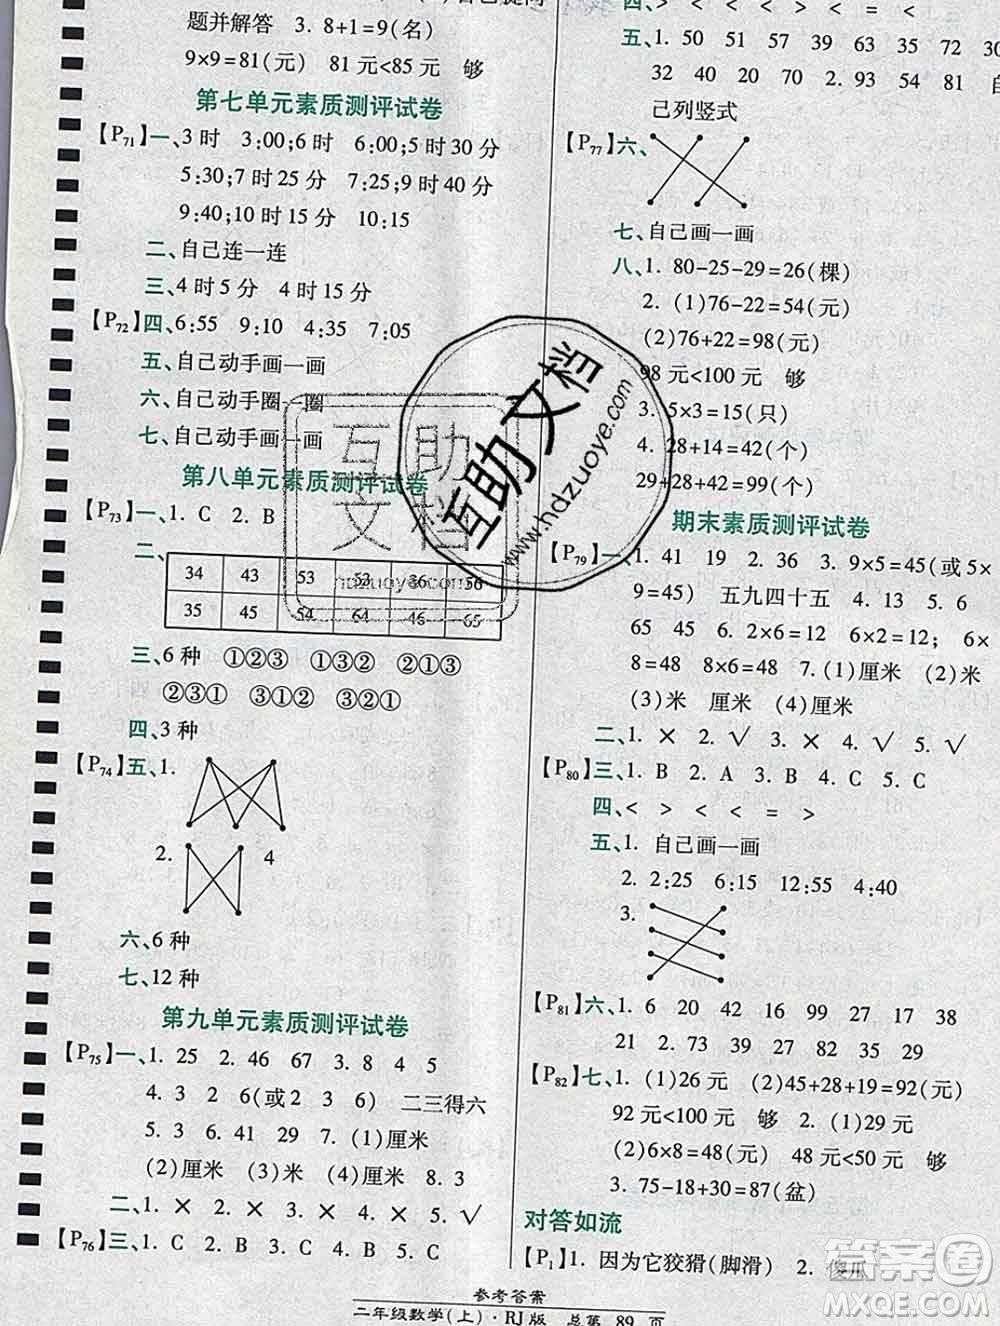 题并解答 3. 8+1=9(名)
9×9=81(元) 81元<85元 够
第七单元素质测评试卷
【P71】一、3时 3:00;6时 6:00;5时30分
5:30;7时25分 7:25;9时40分
9:40;10时15分 10:15
二、自己连一连
三、4时5分 4时15分
【P72】四、6:55 9:10 4:35 7:05
五、自己动手画一画
六、自己动手圈一圈
七、自己动手画一画
第八单元素质测评试卷
【P73】一、1. C 2. B
二、
34 43 53 53 36 56
35 45 54 64 46 65
三、6种 ①②③ ①③② ②①③
②③① ③①② ③②①
四、3种
【P74】五、1.
2. 4
六、6种
七、12种
第九单元素质测评试卷
【P75】一、1. 25 2. 46 67 3. 8 4 5
4. 3 2 6(或2 3 6) 二三得六
5. 3 6. 41 29 7. (1)厘米
(2)厘米 (3)厘米 8. 3
二、1. × 2. × 3. × 4. × 5. √
【P76】三、1. C 2. B 3. B 4. C 5. C
四、> < < < < < = <
五、1. 50 51 57 35 72 30
32 40 2. 84 90 54 81 自
己列竖式
【P77】六、
七、自己画一画
八、1. 80-25-29=26(棵)
2. (1)76-22=54(元)
(2)76+22=98(元)
98元<100元 够
3. 5×3=15(只)
4. 28+14=42(个)
29+28+42=99(个)
期末素质测评试卷
【P79】一、1. 41 19 2. 36 3. 9×5=45(或5×
9=45) 五九四十五 4. 13 5. 9
65 45 6. 2×6=12 6×2=12; 6×
8=48 8×6=48 7. (1)厘米 (2)米
(3)米 厘米 8. (1)厘米 (2)米
二、1. × 2. √ 3. × 4. √ 5. √
【P80】三、1. B 2. A 3. B 4. C 5. C
四、< > < < = >
五、1. 自己画一画
2. 2:25 6:15 12:55 4:40
3.
【P81】六、1. 6 20 42 16 99 17 38
21 2. 73 39 27 82 35 29
【P82】七、1. (1)26元 (2)45+28+19=92(元)
92元<100元 够 2. (1)29元
(2)6×8=48(元) 48元<50元 够
3. 75-18+30=87(盆)
对答如流
【P1】1. 因为它狡猾(脚滑) 2. 傻瓜
参考答案
二年级数学(上)·RJ版 总第 89 页
互助文档
www.hdzuoye.com
互助
文档
hdzuoye.com
答案圈
MXQE.COM